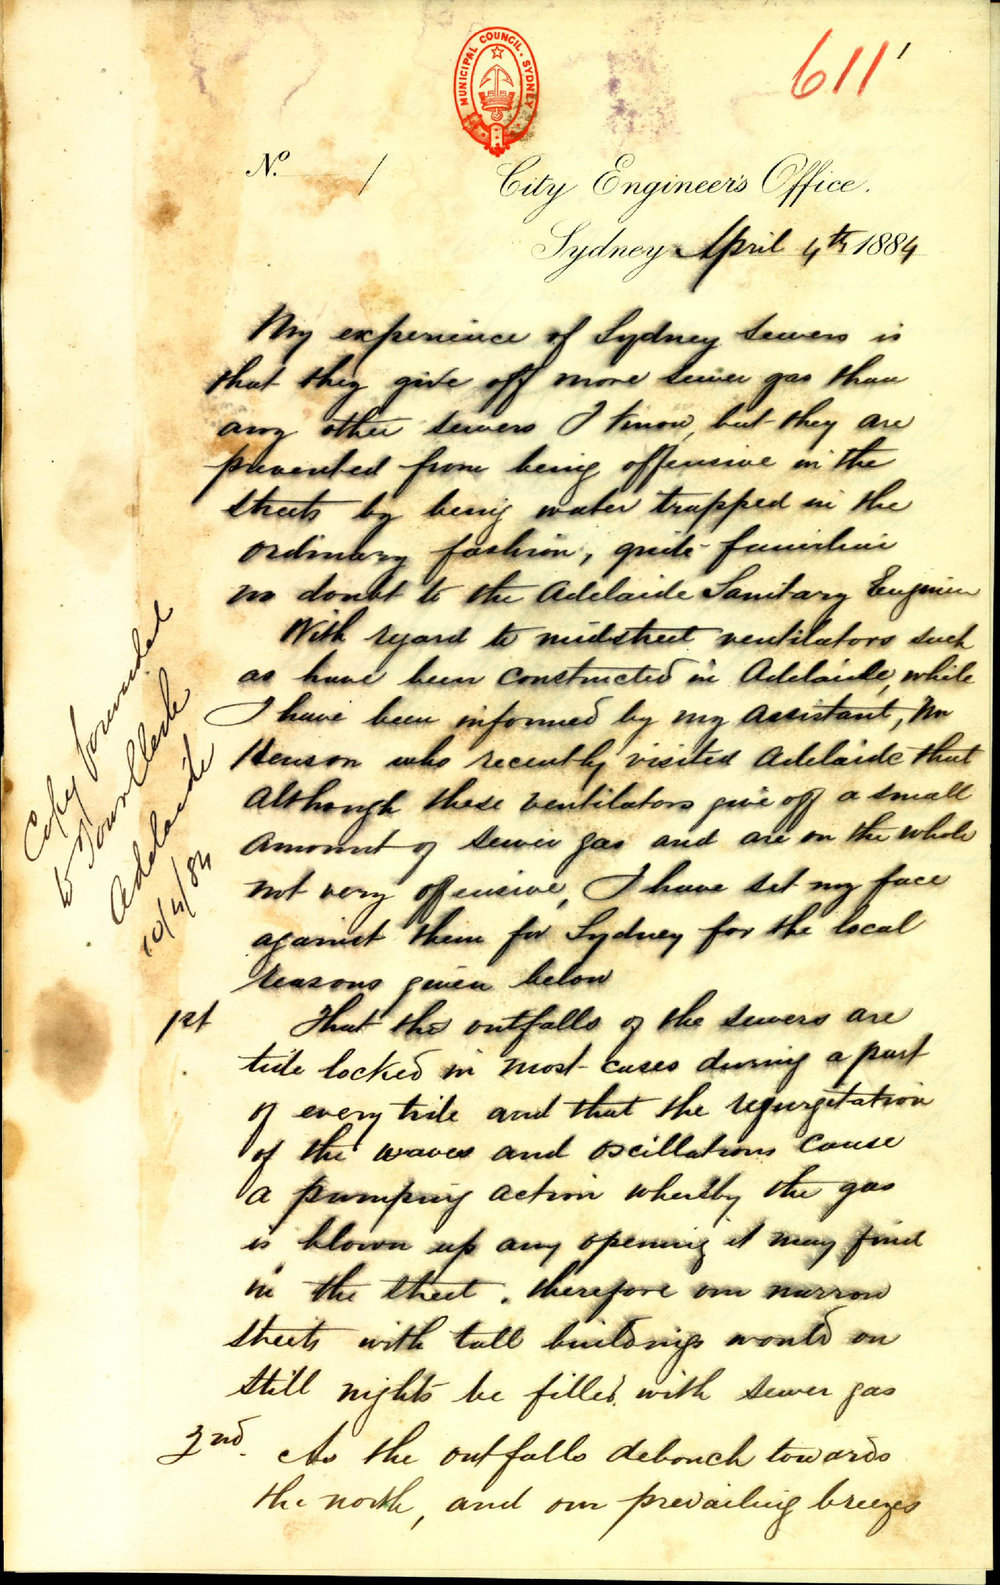 MUNICIPAL COUNCIL. SYDNEY
611
No. /
City Engineer's Office.
Sydney April 4th 1884
My experience of Sydney sewers is
that they give off more sewer gas than
any other sewers I know, but they are
prevented from being offensive in the
streets by being water trapped in the
ordinary fashion, quite familiar
no doubt to the Adelaide Sanitary Engineer
With regard to midstreet ventilators such
as have been constructed in Adelaide, while
I have been informed by my Assistant, Mr
Henson who recently visited Adelaide that
Although these ventilators give off a small
amount of sewer gas and are on the whole
not very offensive, I have set my face
against them for Sydney for the local
reasons given below
1st That the outfalls of the sewers are
tide locked in most cases during a part
of every tide and that the regurgitation
of the waves and oscillations cause
a pumping action whereby the gas
is blown up any opening it may find
in the street. therefore our narrow
streets with tall buildings would on
still nights be filled with sewer gas
2nd. As the outfalls debouch towards
the north, and our prevailing breezes
Copy forwarded
to Town Clerk
Adelaide
10/4/84